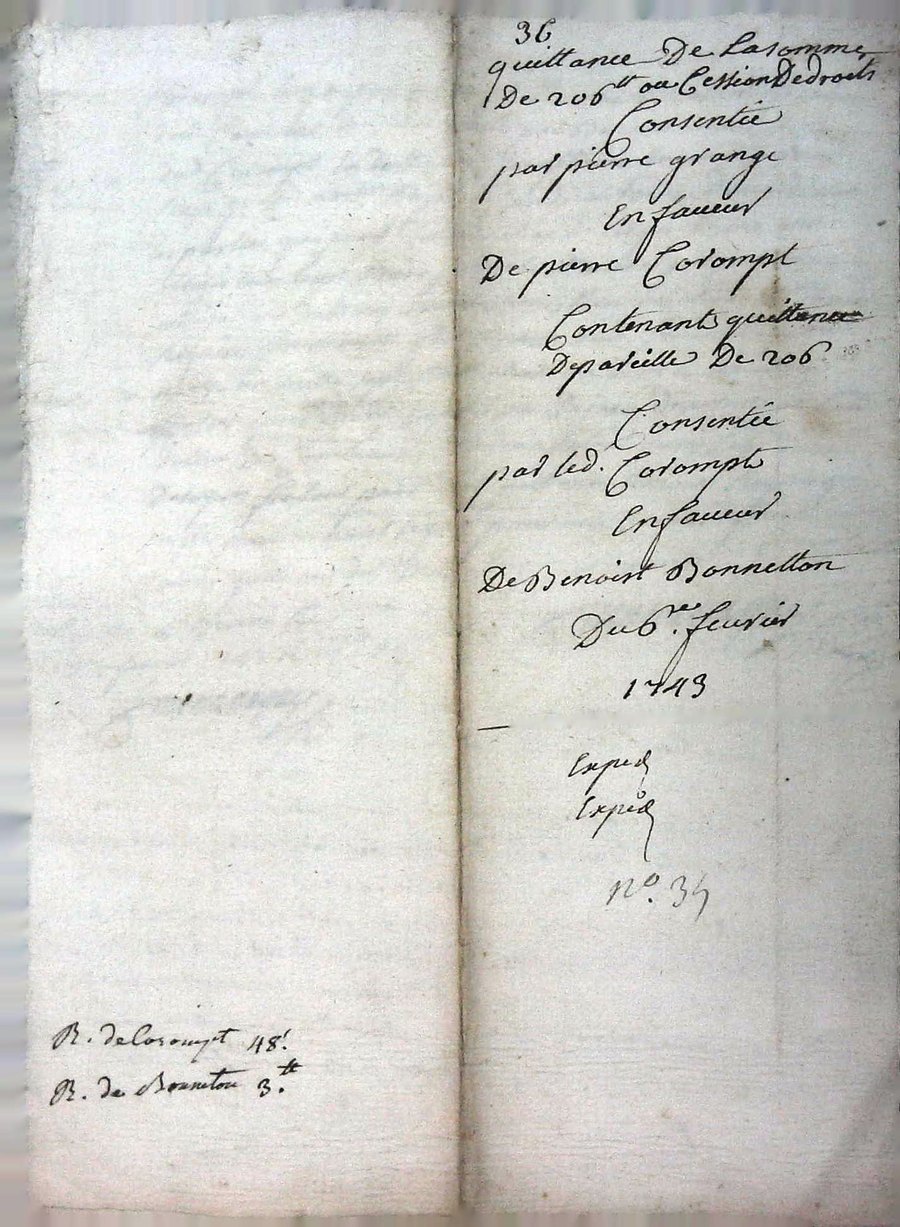 36
quittance De Lasomme
De 206tt ou Cession Dedroits
Consentie
par pierre grange
En faveur
De pierre Corompt
Contenant quittance
Depareille De 206
Consentie
par led. Corompt
En faveur
De Benoist Bonnetton
Du 6re. fevrier
1743
Exped
Exped
n°. 35
R. de Corompt 48s.
R. de Bonneton 3.tt